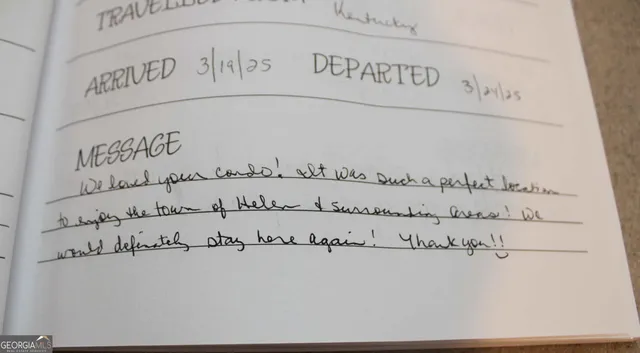 Kentucky
ARRIVED 3/19/25 DEPARTED 3/24/25
MESSAGE
We loved your condo! It was such a perfect location
to enjoy the town of Helen & surrounding areas! We
would definately stay here again! Thank you!!
GEORGIAMLS